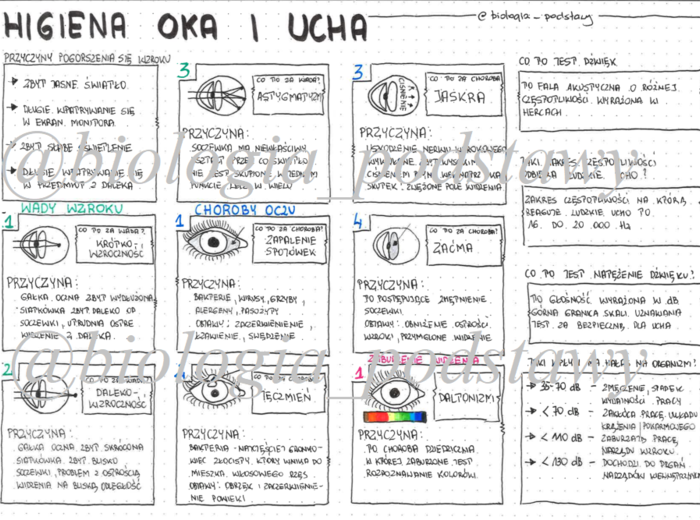 HIGIENA OKA I UCHA
@biologia_podstawy
PRZYCZYNY POGORSZENIA SIĘ WZROKU
→ ZBYT JASNE ŚWIATŁO
→ DŁUGIE WPATRYWANIE SIĘ
W EKRAN MONITORA
→ ZBYT SŁABE OŚWIETLENIE
→ DŁUGIE WPATRYWANIE SIĘ
W PRZEDMIOT Z DALEKA
WADY WZROKU
1
CO TO ZA WADA?
KRÓTKO-
WZROCZNOŚĆ
PRZYCZYNA:
GAŁKA OCZNA ZBYT WYDŁUŻONA
SIATKÓWKA ZBYT DALEKO OD
SOCZEWKI, UTRUDNIA OSTRE
WIDZENIE Z DALEKA
2
DALEKO-
WZROCZNOŚĆ
PRZYCZYNA:
GAŁKA OCZNA ZBYT SKRÓCONA
SIATKÓWKA ZBYT BLISKO
SOCZEWKI, PROBLEM Z OSTROŚCIĄ
WIDZENIA NA BLISKĄ ODLEGŁOŚĆ
3
CO TO ZA WADA?
ASTYGMATYZM
PRZYCZYNA:
SOCZEWKA MA NIEWŁAŚCIWY
KSZTAŁT PRZEZ CO ŚWIATŁO
NIE JEST SKUPIONE W JEDNYM
PUNKCIE LECZ W WIELU
CHOROBY OCZU
1
CO TO ZA CHOROBA?
ZAPALENIE
SPOJÓWEK
PRZYCZYNA:
BAKTERIE, WIRUSY, GRZYBY,
ALERGENY, PASOŻYTY
OBJAWY: ZACZERWIENIENIE,
ŁZAWIENIE, SWĘDZENIE
CO TO ZA CHOROBA?
JĘCZMIEŃ
PRZYCZYNA:
BAKTERIA - NAJCZĘŚCIEJ GRONKO-
WIEC ZŁOCISTY, KTÓRY WNIKA DO
MIESZKA WŁOSOWEGO RZĘS
OBJAWY: OBRZĘK I ZACZERWIENIE-
NIE POWIEKI
3
CIŚNIENIE
CO TO ZA CHOROBA
JASKRA
PRZYCZYNA:
USZKODZENIE NERWU WZROKOWEGO
CIŚNIENIEM PŁYNU WEWNĄTRZ OKA
SKUTEK: ZWĘŻONE POLE WIDZENIA
4
CO TO ZA CHOROBA?
ZAĆMA
PRZYCZYNA:
TO POSTĘPUJĄCE ZMĘTNIENIE
SOCZEWKI
OBJAWY: OBNIŻENIE OSTROŚCI
WZROKU, PRZYĆMIONE WIDZENIE
ZABURZENIE WIDZENIA
1
DALTONIZM
PRZYCZYNA:
TO CHOROBA DZIEDZICZNA
W KTÓREJ ZABURZONE JEST
ROZPOZNAWANIE KOLORÓW
CO TO JEST DŹWIĘK
TO FALA AKUSTYCZNA O RÓŻNEJ
CZĘSTOTLIWOŚCI WYRAŻONA W
HERCACH
JAKI ZAKRES CZĘSTOTLIWOŚCI
ODBIERA LUDZKIE UCHO?
ZAKRES CZĘSTOTLIWOŚCI NA KTÓRĄ
REAGUJE LUDZKIE UCHO TO
16 DO 20 000 Hz
CO TO JEST NATĘŻENIE DŹWIĘKU?
TO GŁOŚNOŚĆ WYRAŻONA W dB
GÓRNA GRANICA SKALI UZNAWANA
JEST ZA BEZPIECZNĄ DLA UCHA
JAKI WPŁYW MA HAŁAS NA ORGANIZM?
→ 35-70 dB - ZMĘCZENIE, SPADEK
WYDAJNOŚCI PRACY
→ < 70 dB - ZAKŁÓCA PRACĘ UKŁADU
KRĄŻENIA I POKARMOWEGO
→ < 110 dB - ZABURZATY PRACĘ
NARZĄDU WZROKU
→ < 130 dB - DOCHODZI DO DRGAŃ
NARZĄDÓW WEWNĘTRZNYCH
@biologia_podstawy
@biologia_podstawy